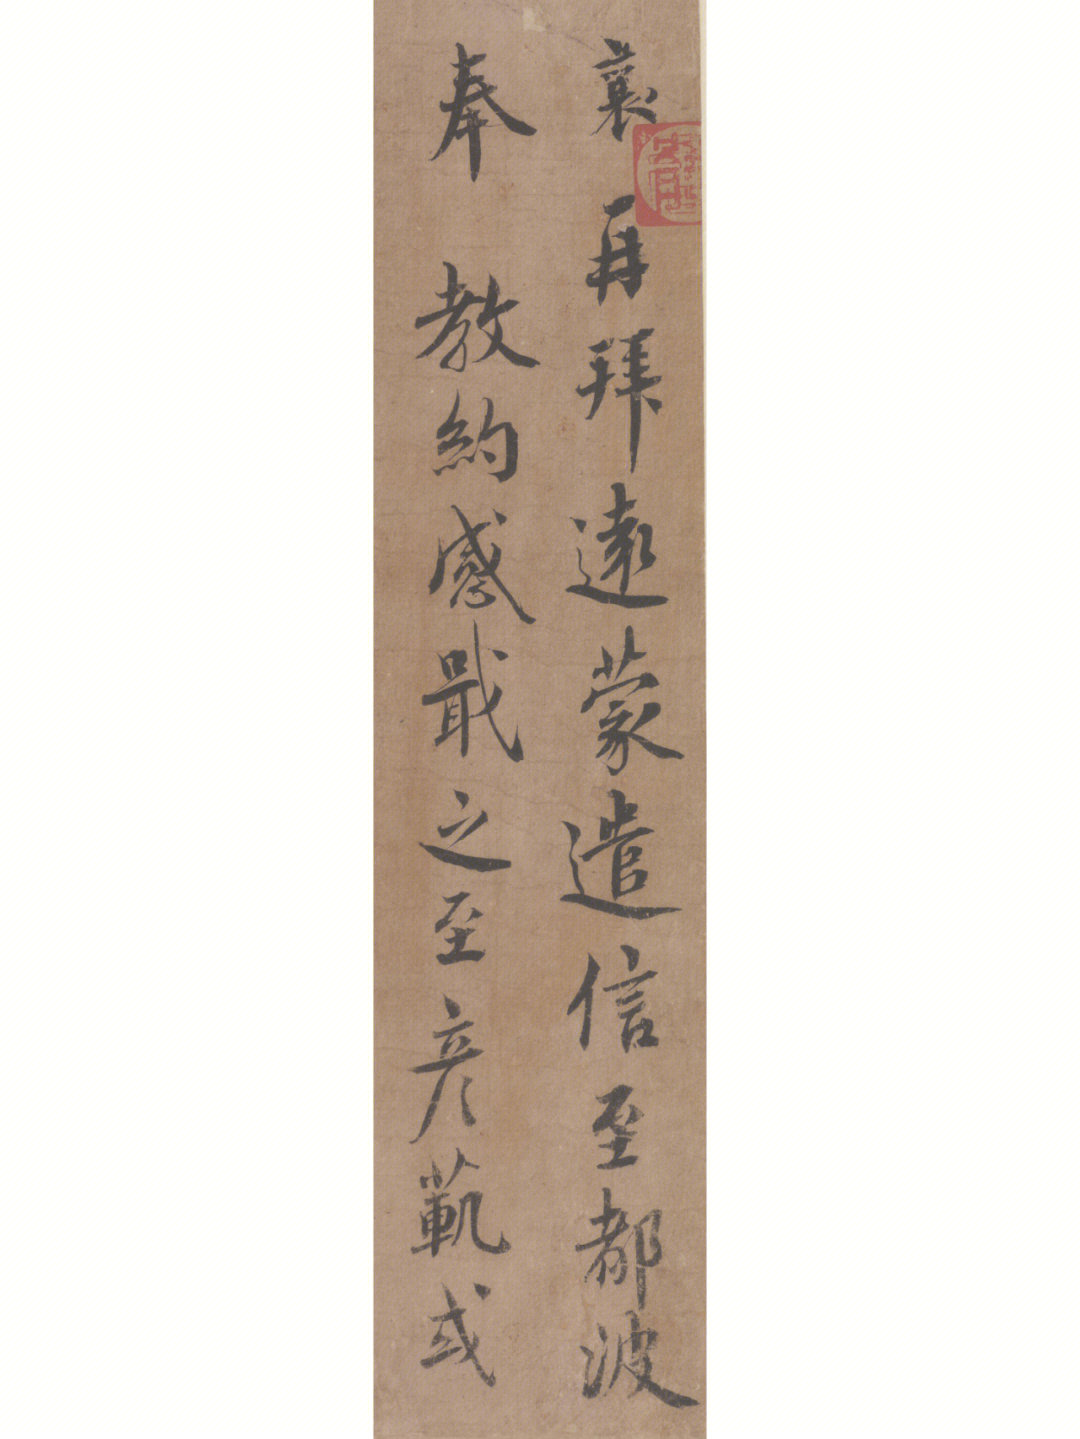 襄再拜遠蒙遣信至都波
奉教約感戢之至彦範或